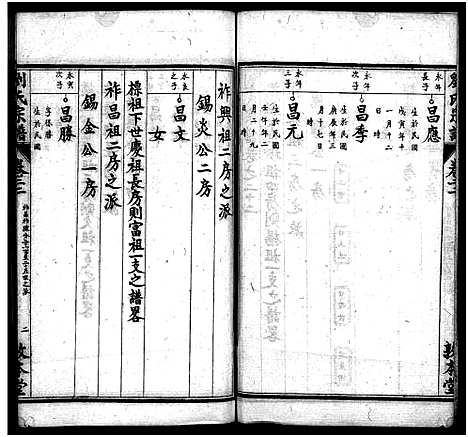 劉氏宗譜
卷三
敦本堂
永年長子
昌應
生於民國
戊寅年十
一月十二
永年次子
昌季
生於民國
庚辰年
月十七日
時
永年三子
昌元
生於民國
壬午年二
月二十九
日 時
祚興祖二房之派
錫炎公二房
永良之子
昌文
女
標祖下世慶祖長房則富祖一支之譜畧
祚昌祖二房之派
錫金公一房
永寅次子
昌勝
字保勝
生於民國
劉氏宗譜
卷三
二
敦本堂